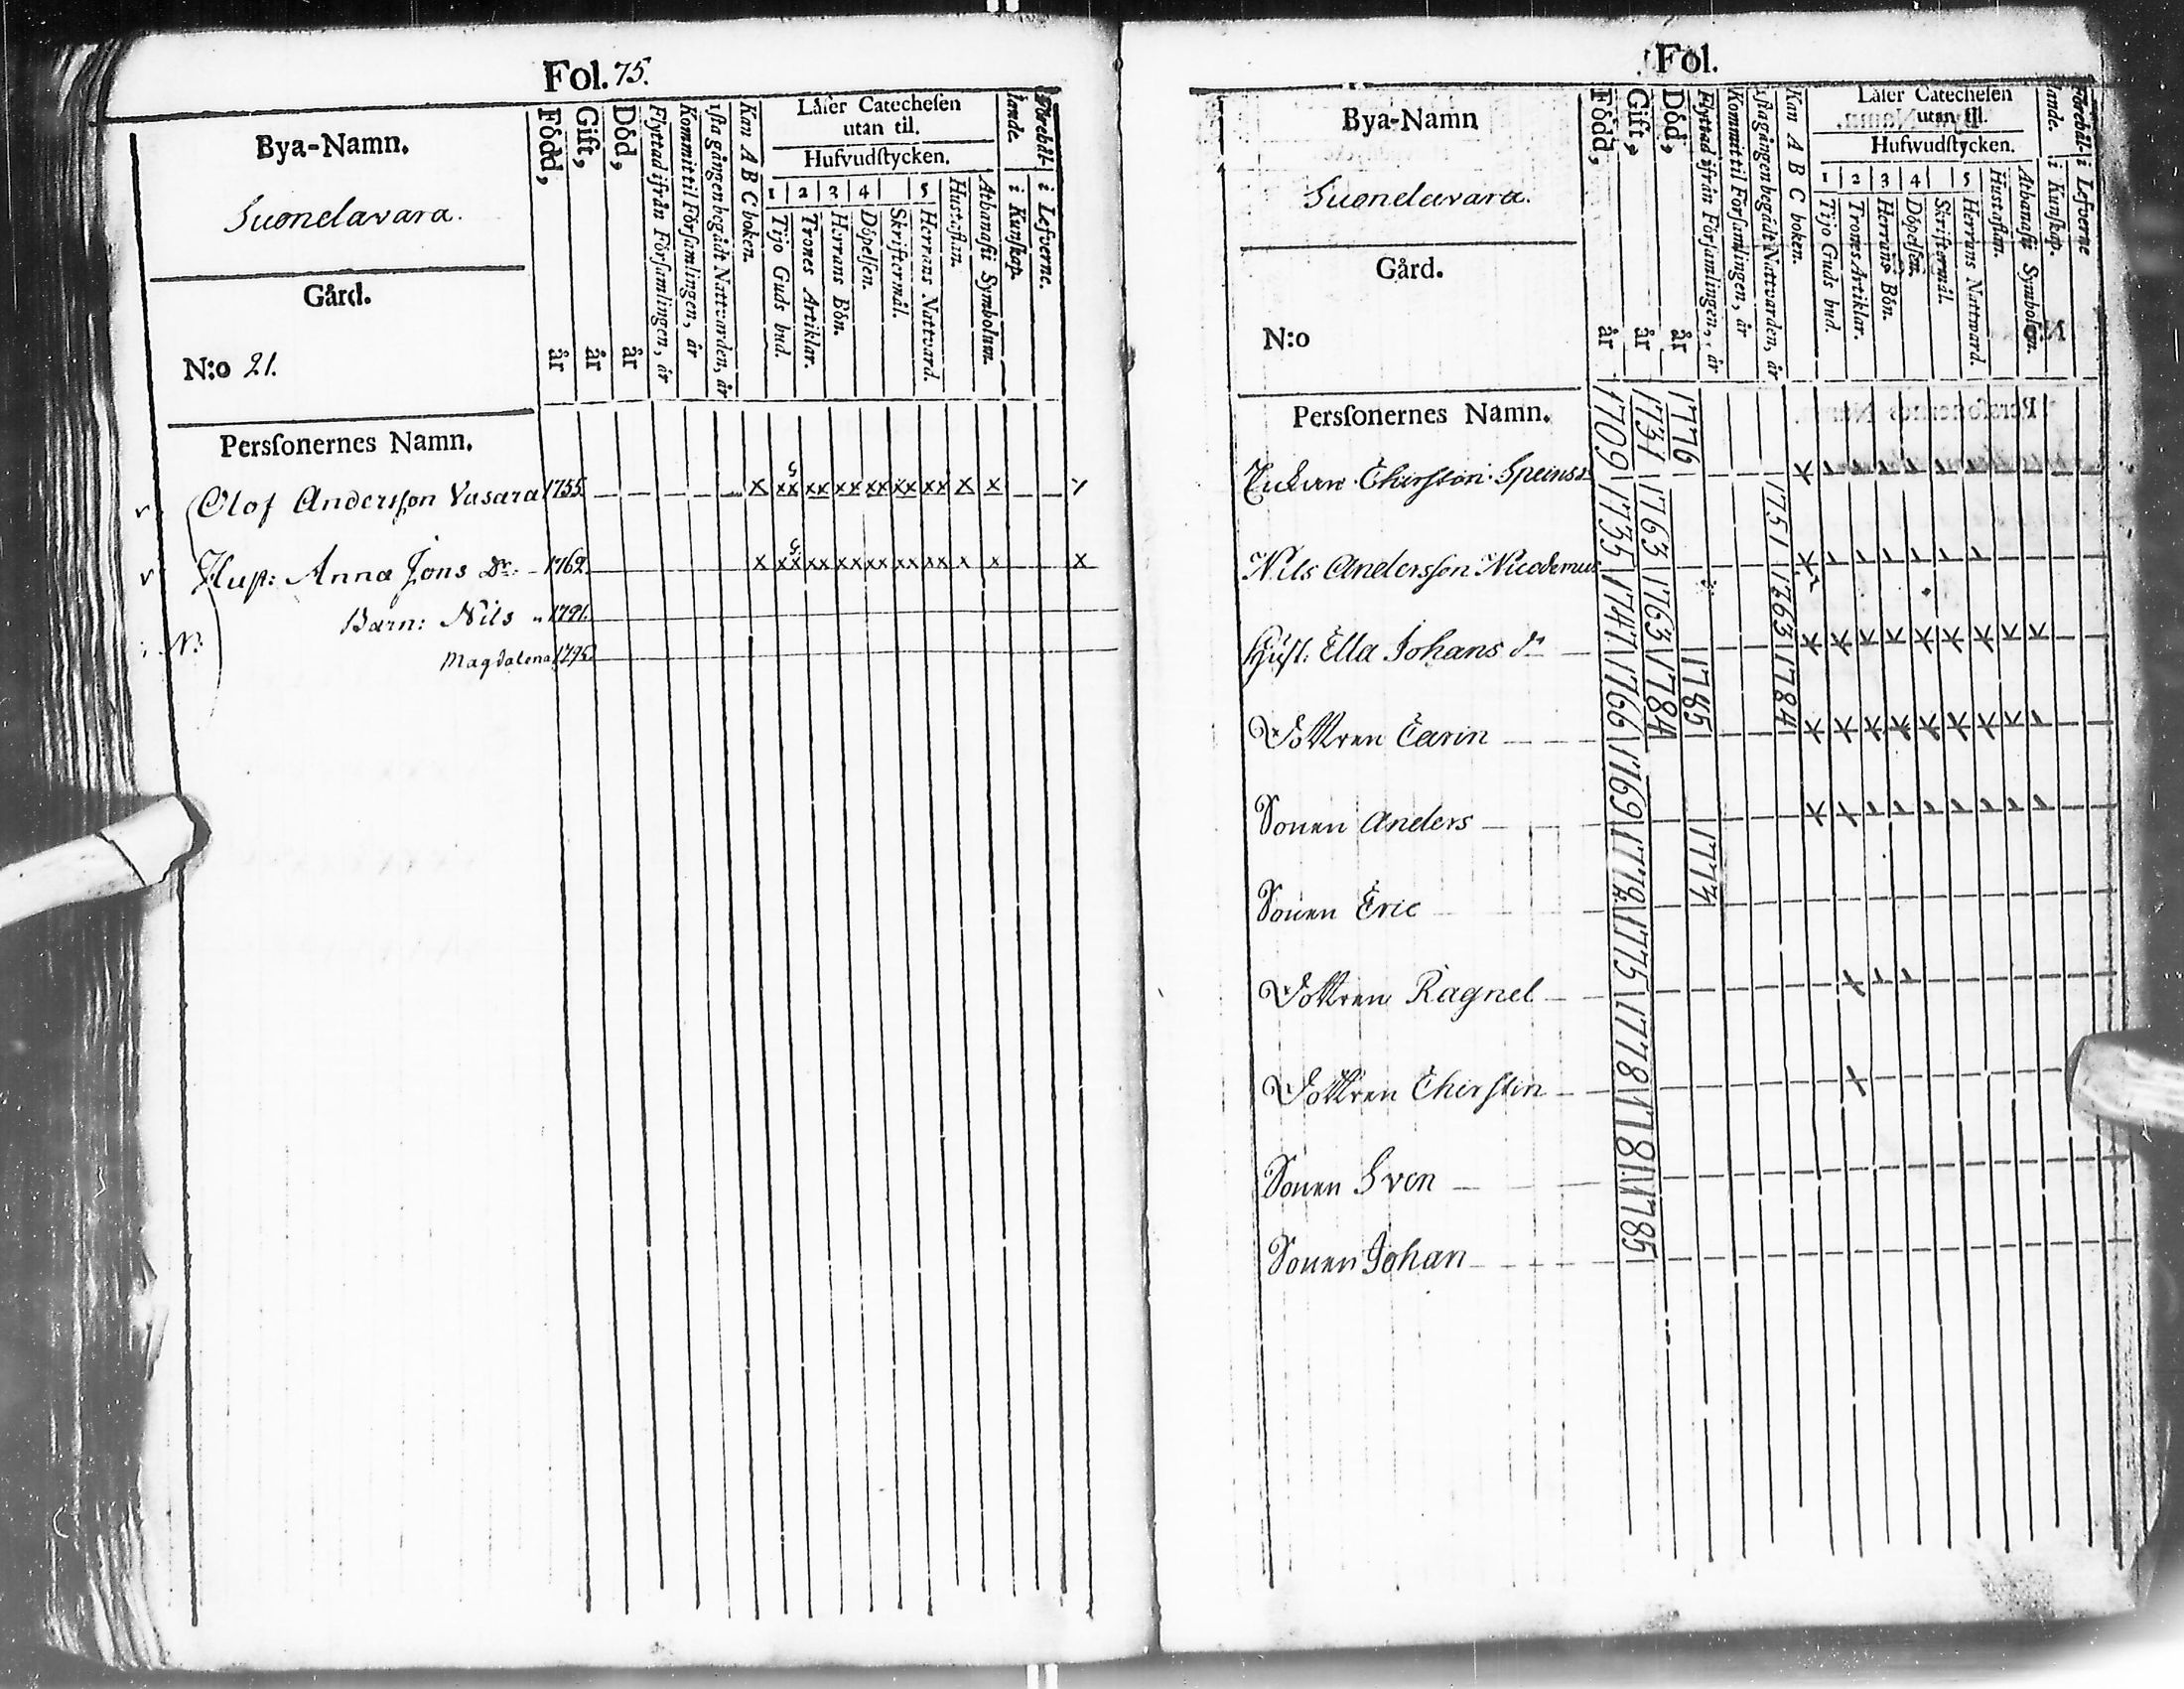 Fol. 75.
Bya-Namn.
Suonelavara.
Gård.
N:o 21.
Persſonernes Namn.
Född, år
Gift, år
Död, år
Flyttad ifrån Förſamlingen, år
Kommit til Förſamlingen, år
1ſta gången begådt Nattvarden, år
Kan A B C boken.
Läſer Catecheſen
utan til.
Hufvudſtycken.
1 2 3 4 5
Tijo Guds bud.
Trones Artiklar.
Herrans Bön.
Döpelſen.
Skriftermål.
Herrans Nattvard.
Hustaflan.
Athanaſii Symbolum.
Förehål-
lande.
i Kunſkap.
i Lefverne.
Olof Andersſon Vasara 1755. x xx xx xx xx xx xx x x
Huſt: Anna Jons Dr. 1762. x xx xx xx xx xx xx x x x
Barn: Nils 1791.
N: Magdalena 1795.
Fol.
Bya-Namn
Suonelavara.
Gård.
N:o
Persſonernes Namn.
Född, år
Gift, år
Död, år
Flyttad ifrån Förſamlingen, år
Kommit til Förſamlingen, år
1ſta gången begådt Nattvarden, år
Kan A B C boken.
Läſer Catecheſen
utan til.
Hufwudſtycken.
1 2 3 4 5
Tijo Guds bud.
Trones Artiklar.
Herrans Bön.
Döpelſen.
Skriftermål.
Herrans Nattward.
Hustaflan.
Athanaſii Symbolum.
Förehål-
lande.
i Kunſkap.
i Lefverne
Enkan Chirſton 1709 1731 1776
Nils Andersſon Nicodemus 1735 1763 1751
Huſt. Ella Johans dr 1747 1763 1763
Dottren Carin 1766 1784 1785 1784
Sonen Anders 1769
Sonen Eric 1772 1774
Dottren Ragnel 1775
Dottren Chirſtin 1778
Sonen Sven 1781
Sonen Johan 1785